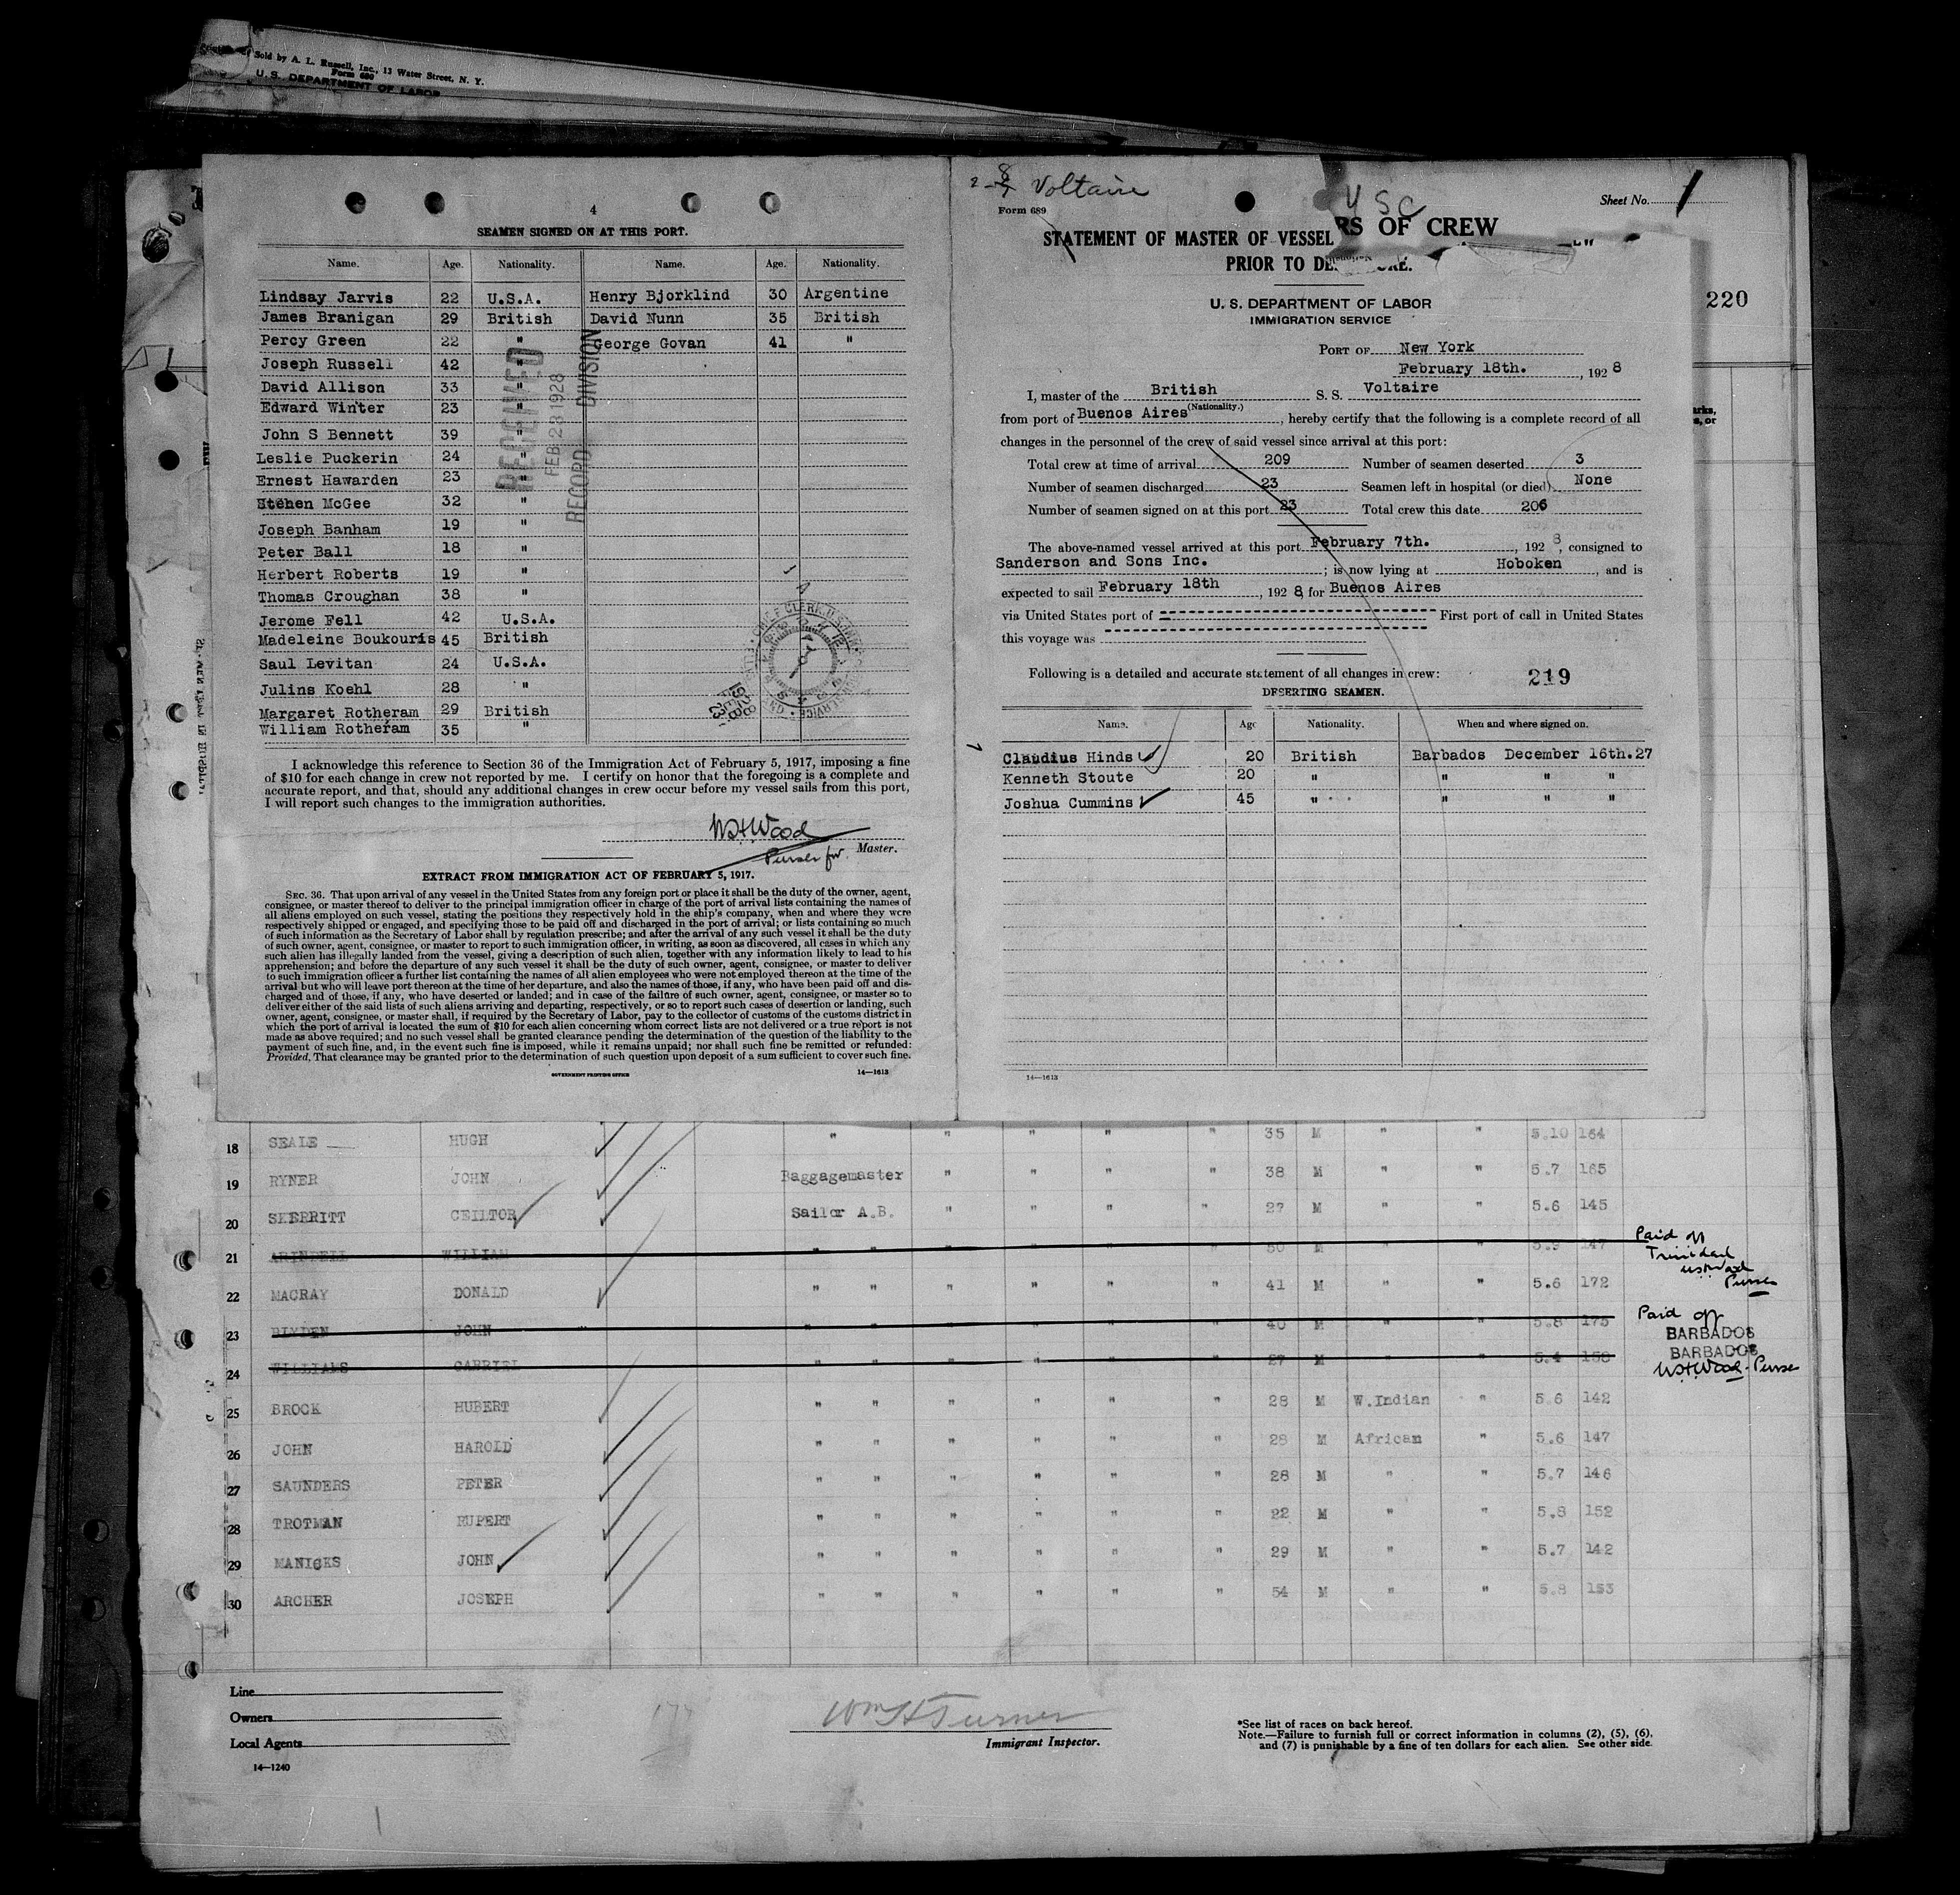 Sold by A. L. Russell, Inc., 13 Water Street, N. Y.
Form 689
U. S. DEPARTMENT OF LABOR
4
SEAMEN SIGNED ON AT THIS PORT.
Name. Age. Nationality. Name. Age. Nationality.
Lindsay Jarvis 22 U.S.A. Henry Bjorklind 30 Argentine
James Branigan 29 British David Nunn 35 British
Percy Green 22 " George Govan 41 "
Joseph Russell 42 "
David Allison 33 "
Edward Winter 23 "
John S Bennett 39 "
Leslie Puckerin 24 "
Ernest Hawarden 23 "
Stehen McGee 32 "
Joseph Banham 19 "
Peter Ball 18 "
Herbert Roberts 19 "
Thomas Croughan 38 "
Jerome Fell 42 U.S.A.
Madeleine Boukouris 45 British
Saul Levitan 24 U.S.A.
Julins Koehl 28 "
Margaret Rotheram 29 British
William Rotheram 35 "
RECEIVED
FEB 23 1928
RECORD DIVISION
I acknowledge this reference to Section 36 of the Immigration Act of February 5, 1917, imposing a fine
of $10 for each change in crew not reported by me. I certify on honor that the foregoing is a complete and
accurate report, and that, should any additional changes in crew occur before my vessel sails from this port,
I will report such changes to the immigration authorities.
W.H.Wood
Purser for Master.
EXTRACT FROM IMMIGRATION ACT OF FEBRUARY 5, 1917.
SEC. 36. That upon arrival of any vessel in the United States from any foreign port or place it shall be the duty of the owner, agent,
consignee, or master thereof to deliver to the principal immigration officer in charge of the port of arrival lists containing the names of
all aliens employed on such vessel, stating the positions they respectively hold in the ship's company, when and where they were
respectively shipped or engaged, and specifying those to be paid off and discharged in the port of arrival; or lists containing so much
of such information as the Secretary of Labor shall by regulation prescribe; and after the arrival of any such vessel it shall be the duty
of such owner, agent, consignee, or master to report to such immigration officer, in writing, as soon as discovered, all cases in which any
such alien has illegally landed from the vessel, giving a description of such alien, together with any information likely to lead to his
apprehension; and before the departure of any such vessel it shall be the duty of such owner, agent, consignee, or master to deliver
to such immigration officer a further list containing the names of all alien employees who were not employed thereon at the time of the
arrival but who will leave port thereon at the time of her departure, and also the names of those, if any, who have been paid off and dis-
charged and of those, if any, who have deserted or landed; and in case of the failure of such owner, agent, consignee, or master so to
deliver either of the said lists of such aliens arriving and departing, respectively, or so to report such cases of desertion or landing, such
owner, agent, consignee, or master shall, if required by the Secretary of Labor, pay to the collector of customs of the customs district in
which the port of arrival is located the sum of $10 for each alien concerning whom correct lists are not delivered or a true report is not
made as above required; and no such vessel shall be granted clearance pending the determination of the question of the liability to the
payment of such fine, and, in the event such fine is imposed, while it remains unpaid; nor shall such fine be remitted or refunded:
Provided, That clearance may be granted prior to the determination of such question upon deposit of a sum sufficient to cover such fine.
GOVERNMENT PRINTING OFFICE 14—1613
Voltaire
Form 689
USC
Sheet No. 1
RS OF CREW
STATEMENT OF MASTER OF VESSEL
PRIOR TO DE
U. S. DEPARTMENT OF LABOR
IMMIGRATION SERVICE
220
PORT OF New York
February 18th. , 192 8
I, master of the British S. S. Voltaire
(Nationality.)
from port of Buenos Aires , hereby certify that the following is a complete record of all
changes in the personnel of the crew of said vessel since arrival at this port:
Total crew at time of arrival 209 Number of seamen deserted 3
Number of seamen discharged 23 Seamen left in hospital (or died) None
Number of seamen signed on at this port 23 Total crew this date 206
The above-named vessel arrived at this port February 7th. , 192 8, consigned to
Sanderson and Sons Inc. ; is now lying at Hoboken , and is
expected to sail February 18th , 192 8, for Buenos Aires
via United States port of First port of call in United States
this voyage was
Following is a detailed and accurate statement of all changes in crew: 219
DESERTING SEAMEN.
Name. Age Nationality. When and where signed on.
Claudius Hinds 20 British Barbados December 16th.27
Kenneth Stoute 20 " " " "
Joshua Cummins 45 " " " "
14—1613
18 SEALE HUGH " " " " " 35 M " " 5.10 164
19 RYNER JOHN Baggagemaster " " " " 38 M " " 5.7 165
20 SKERRITT CEILTOR Sailor A.B. " " " " 27 M " " 5.6 145
21 ARINDELL WILLIAM " " " " " " 50 M " " 5.9 147 Paid off
Trinidad
W.H.Wood
Purser
22 MACRAY DONALD " " " " " " 41 M " " 5.6 172
23 BLYDEN JOHN " " " " " " 40 M " " 5.8 175 Paid off
BARBADOS
24 WILLIAMS GABRIEL " " " " " " 27 M " " 5.4 158 BARBADOS
W.H.Wood - Purser
25 BROCK HUBERT " " " " " " 28 M W.Indian " 5.6 142
26 JOHN HAROLD " " " " " " 28 M African " 5.6 147
27 SAUNDERS PETER " " " " " " 28 M " " 5.7 146
28 TROTMAN RUPERT " " " " " " 22 M " " 5.8 152
29 MANICKS JOHN " " " " " " 29 M " " 5.7 142
30 ARCHER JOSEPH " " " " " " 54 M " " 5.8 153
Line
Owners
Local Agents
14—1240
177
Wm H Turner
Immigrant Inspector.
*See list of races on back hereof.
Note.—Failure to furnish full or correct information in columns (2), (5), (6),
and (7) is punishable by a fine of ten dollars for each alien. See other side.